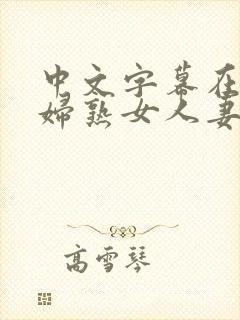 中文字幕在
婦熟女人妻
高雪琴